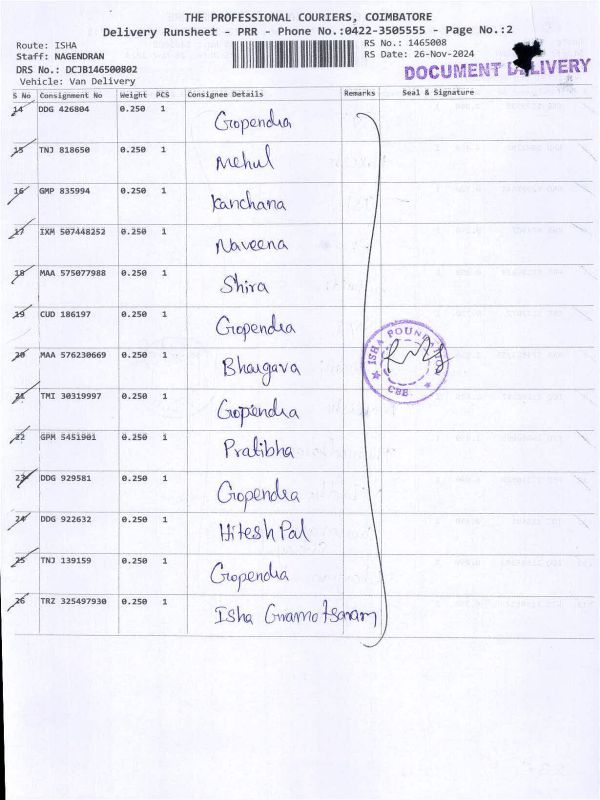 THE PROFESSIONAL COURIERS, COIMBATORE
Delivery Runsheet - PRR - Phone No.:0422-3505555 - Page No.:2
Route: ISHA
RS No.: 1465008
Staff: NAGENDRAN
RS Date: 26-Nov-2024
DRS No.: DCJB146500802
DOCUMENT DELIVERY
Vehicle: Van Delivery
S No Consignment No Weight PCS Consignee Details Remarks Seal & Signature
14 DDG 426804 0.250 1 Gopendra
15 TNJ 818650 0.250 1 Mehul
16 GMP 835994 0.250 1 Kanchana
17 IXM 507448252 0.250 1 Naveena
18 MAA 575077988 0.250 1 Shira
19 CUD 186197 0.250 1 Gopendra
20 MAA 576230669 0.250 1 Bhargava
21 TMI 30319997 0.250 1 Gopendra
22 GPM 5451901 0.250 1 Pratibha
23 DDG 929581 0.250 1 Gopendra
24 DDG 922632 0.250 1 Hitesh Pal
25 TNJ 139159 0.250 1 Gopendra
26 TRZ 325497930 0.250 1 Isha
ISHA
CBE.